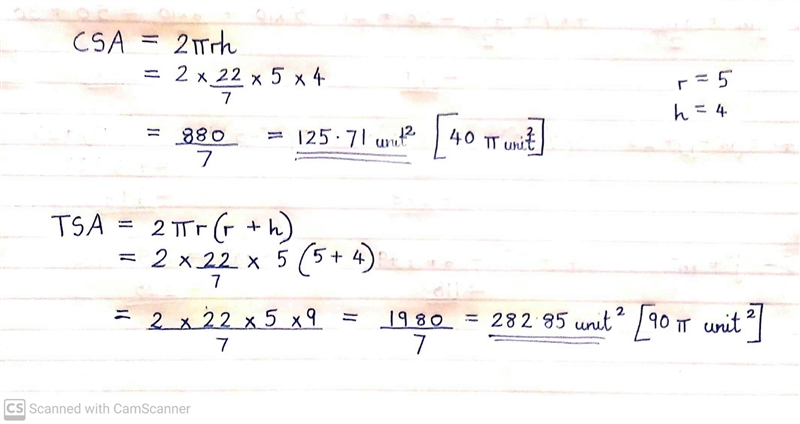 CSA = 2πrh
= 2 × 22/7 × 5 × 4
r = 5
h = 4
= 880/7 = 125.71 unit² [40 π unit²]
TSA = 2πr(r + h)
= 2 × 22/7 × 5 (5 + 4)
= 2 × 22 × 5 × 9/7 = 1980/7 = 282.85 unit² [90 π unit²]
CS Scanned with CamScanner